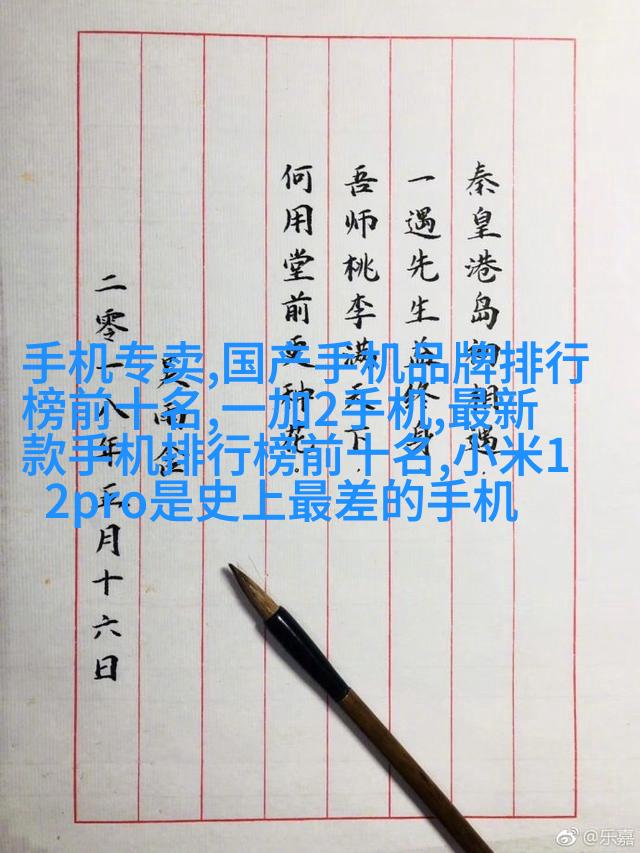 秦皇港岛初相遇
一遇先生益终身
吾师桃李满天下
何用堂前更种花
吴雨
二零一八年月十六日
手机专卖,国产手机品牌排行
榜前十名,一加2手机,最新
款手机排行榜前十名,小米1
2pro是史上最差的手机
@乐嘉